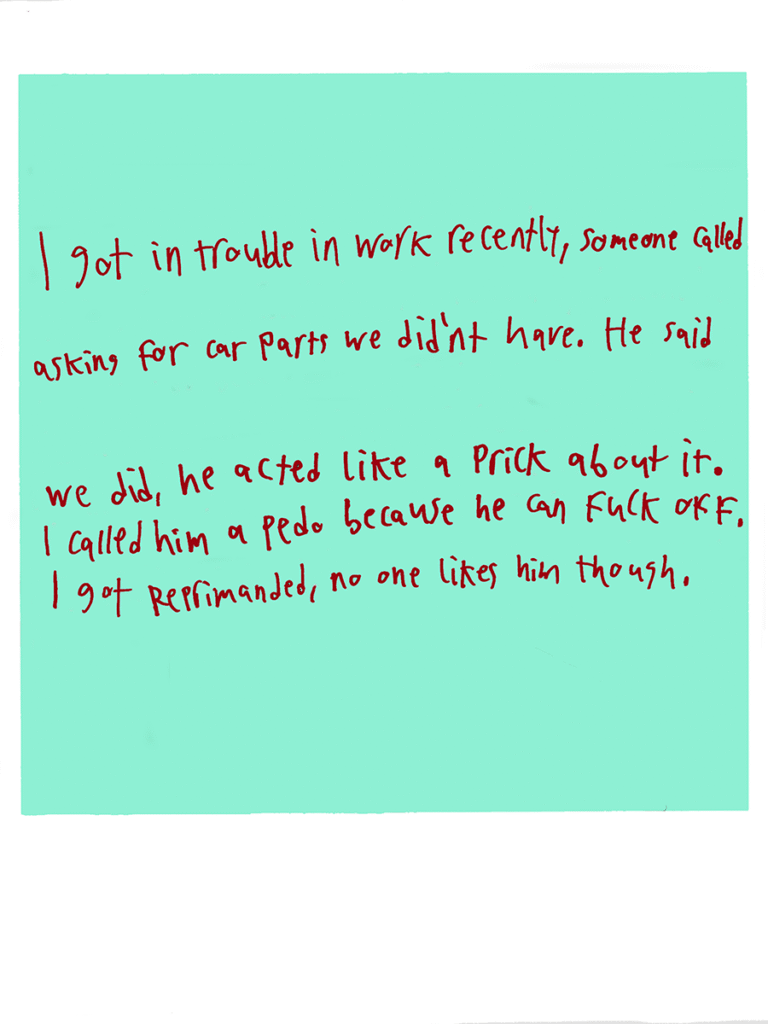 I got in trouble in work recently, someone called
asking for car parts we did'nt have. He said
we did, he acted like a prick about it.
I called him a pedo because he can FUCK OFF.
I got Reprimanded, no one likes him though.